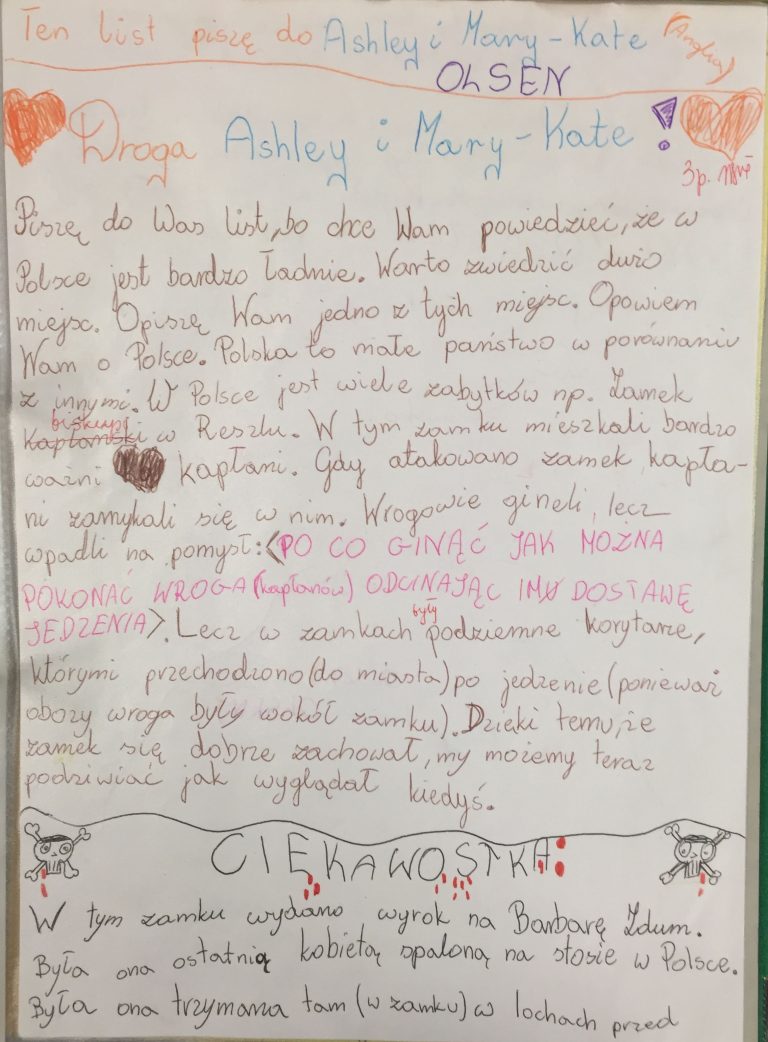 Ten list piszę do Ashley i Mary-Kate (Anglia)
OLSEN
Droga Ashley i Mary-Kate!
3p.
Piszę do Was list, bo chce Wam powiedzieć, że w
Polsce jest bardzo ładnie. Warto zwiedzić dużo
miejsc. Opiszę Wam jedno z tych miejsc. Opowiem
Wam o Polsce. Polska to małe państwo w porównaniu
z innymi. W Polsce jest wiele zabytków np. Zamek
biskupi
kapłański w Reszlu. W tym zamku mieszkali bardzo
ważni kapłani. Gdy atakowano zamek kapła-
ni zamykali się w nim. Wrogowie gineli, lecz
wpadli na pomysł: <PO CO GINĄĆ JAK MOŻNA
POKONAĆ WROGA (kapłanów) ODCINAJĄC IM DOSTAWĘ
JEDZENIA>. Lecz w zamkach były podziemne korytarze,
którymi przechodzono (do miasta) po jedzenie (ponieważ
obozy wroga były wokół zamku). Dzięki temu, że
zamek się dobrze zachował, my możemy teraz
podziwiać jak wyglądał kiedyś.
CIEKAWOSTKA:
W tym zamku wydano wyrok na Barbarę Zdum.
Była ona ostatnią kobietą spaloną na stosie w Polsce.
Była ona trzymana tam (w zamku) w lochach przed